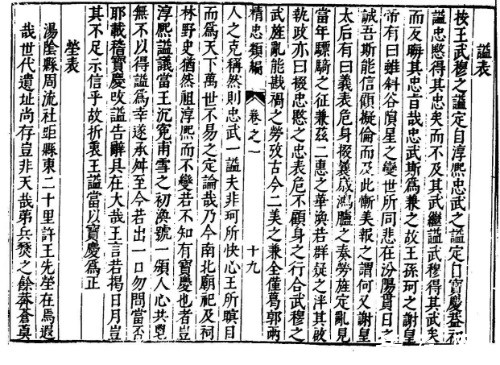 謚表
按王武穆之謚定自淳熙忠武之謚定自寶慶蓋初
謚忠愍得其忠矣而不及其武繼謚武穆得其武矣
而友晦其忠旨哉忠武斯爲兼之故王孫珂之謝
帝有曰雖斜谷隕星之變世所同悲在汾陽貫日之
誠吾斯能信顧擬倫而及此慚美報之謂何又謝皇
太后有曰義表危身掇義成鴻臚之奏勞旌定亂見
當年驃騎之征兼茲二惠之華渙若群疑之泮其被
執政亦曰掇忠愍之忠表危不顧身之行合武穆之
武旌亂能戡禍之勞攷古今二美之兼全僅爲郭兩
精忠類編
卷之一
十九
人之克稱然則忠武一謚夫非珂所快心王所瞑目
而爲天下萬世不易之定論哉乃今南北廟祀及祠
林野史猶然祖淳熙而不變若不知有寶慶也者豈
淳熙謚議當王沉寃甫雪之初渙號一頒人心共
無不以得謚爲幸遂承舛至今若出一口勿問當否
耶載稽寶慶改謚告辭具在大哉王言若揭日月豈
其不足示信乎故折衷王謚當以寶慶爲正
塋表
湯陰縣周流社距縣東二十里許王先塋在焉遐
哉世代遺址尚存豈非天哉弟兵燹之餘莽蒼莫